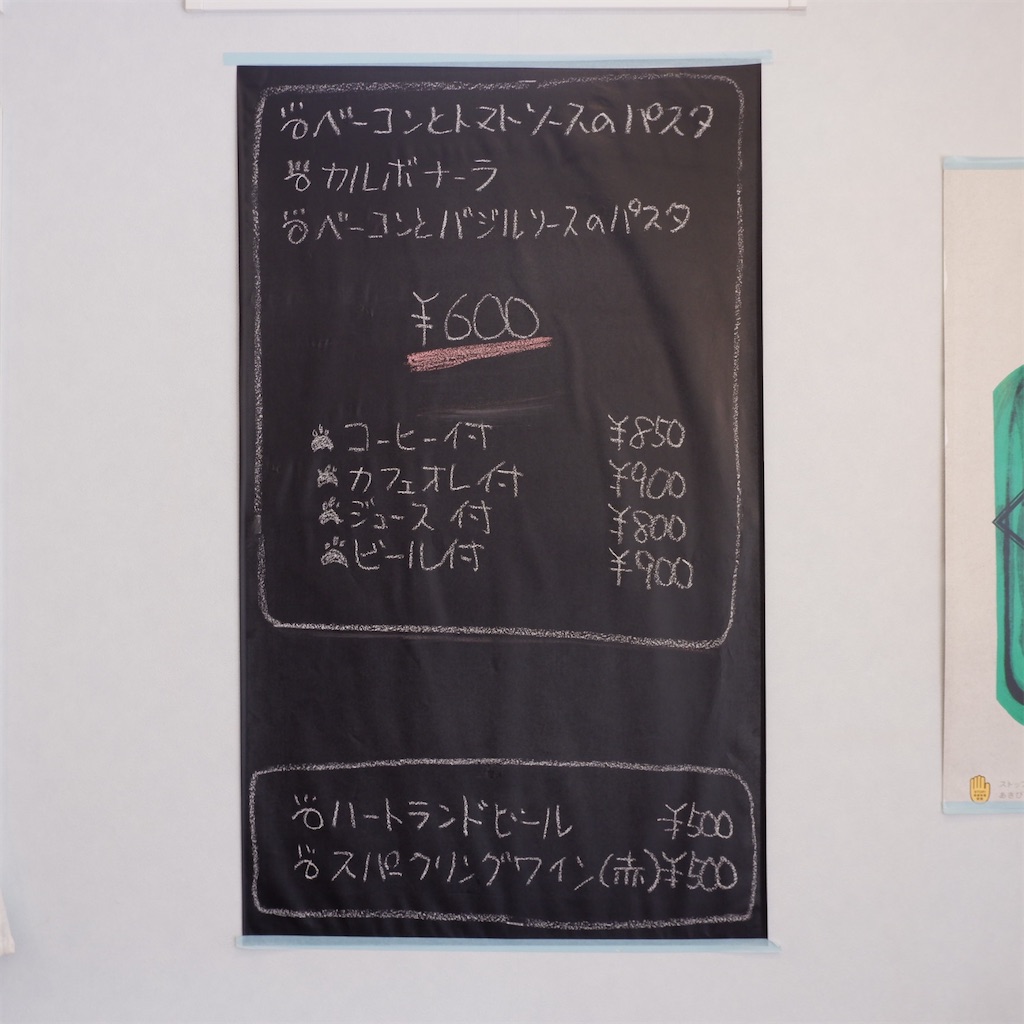 ベーコンとトマトソースのパスタ
カルボナーラ
ベーコンとバジルソースのパスタ
¥600
コーヒー付 ¥850
カフェオレ付 ¥900
ジュース付 ¥800
ビール付 ¥900
ハートランドビール ¥500
スパークリングワイン(赤)¥500